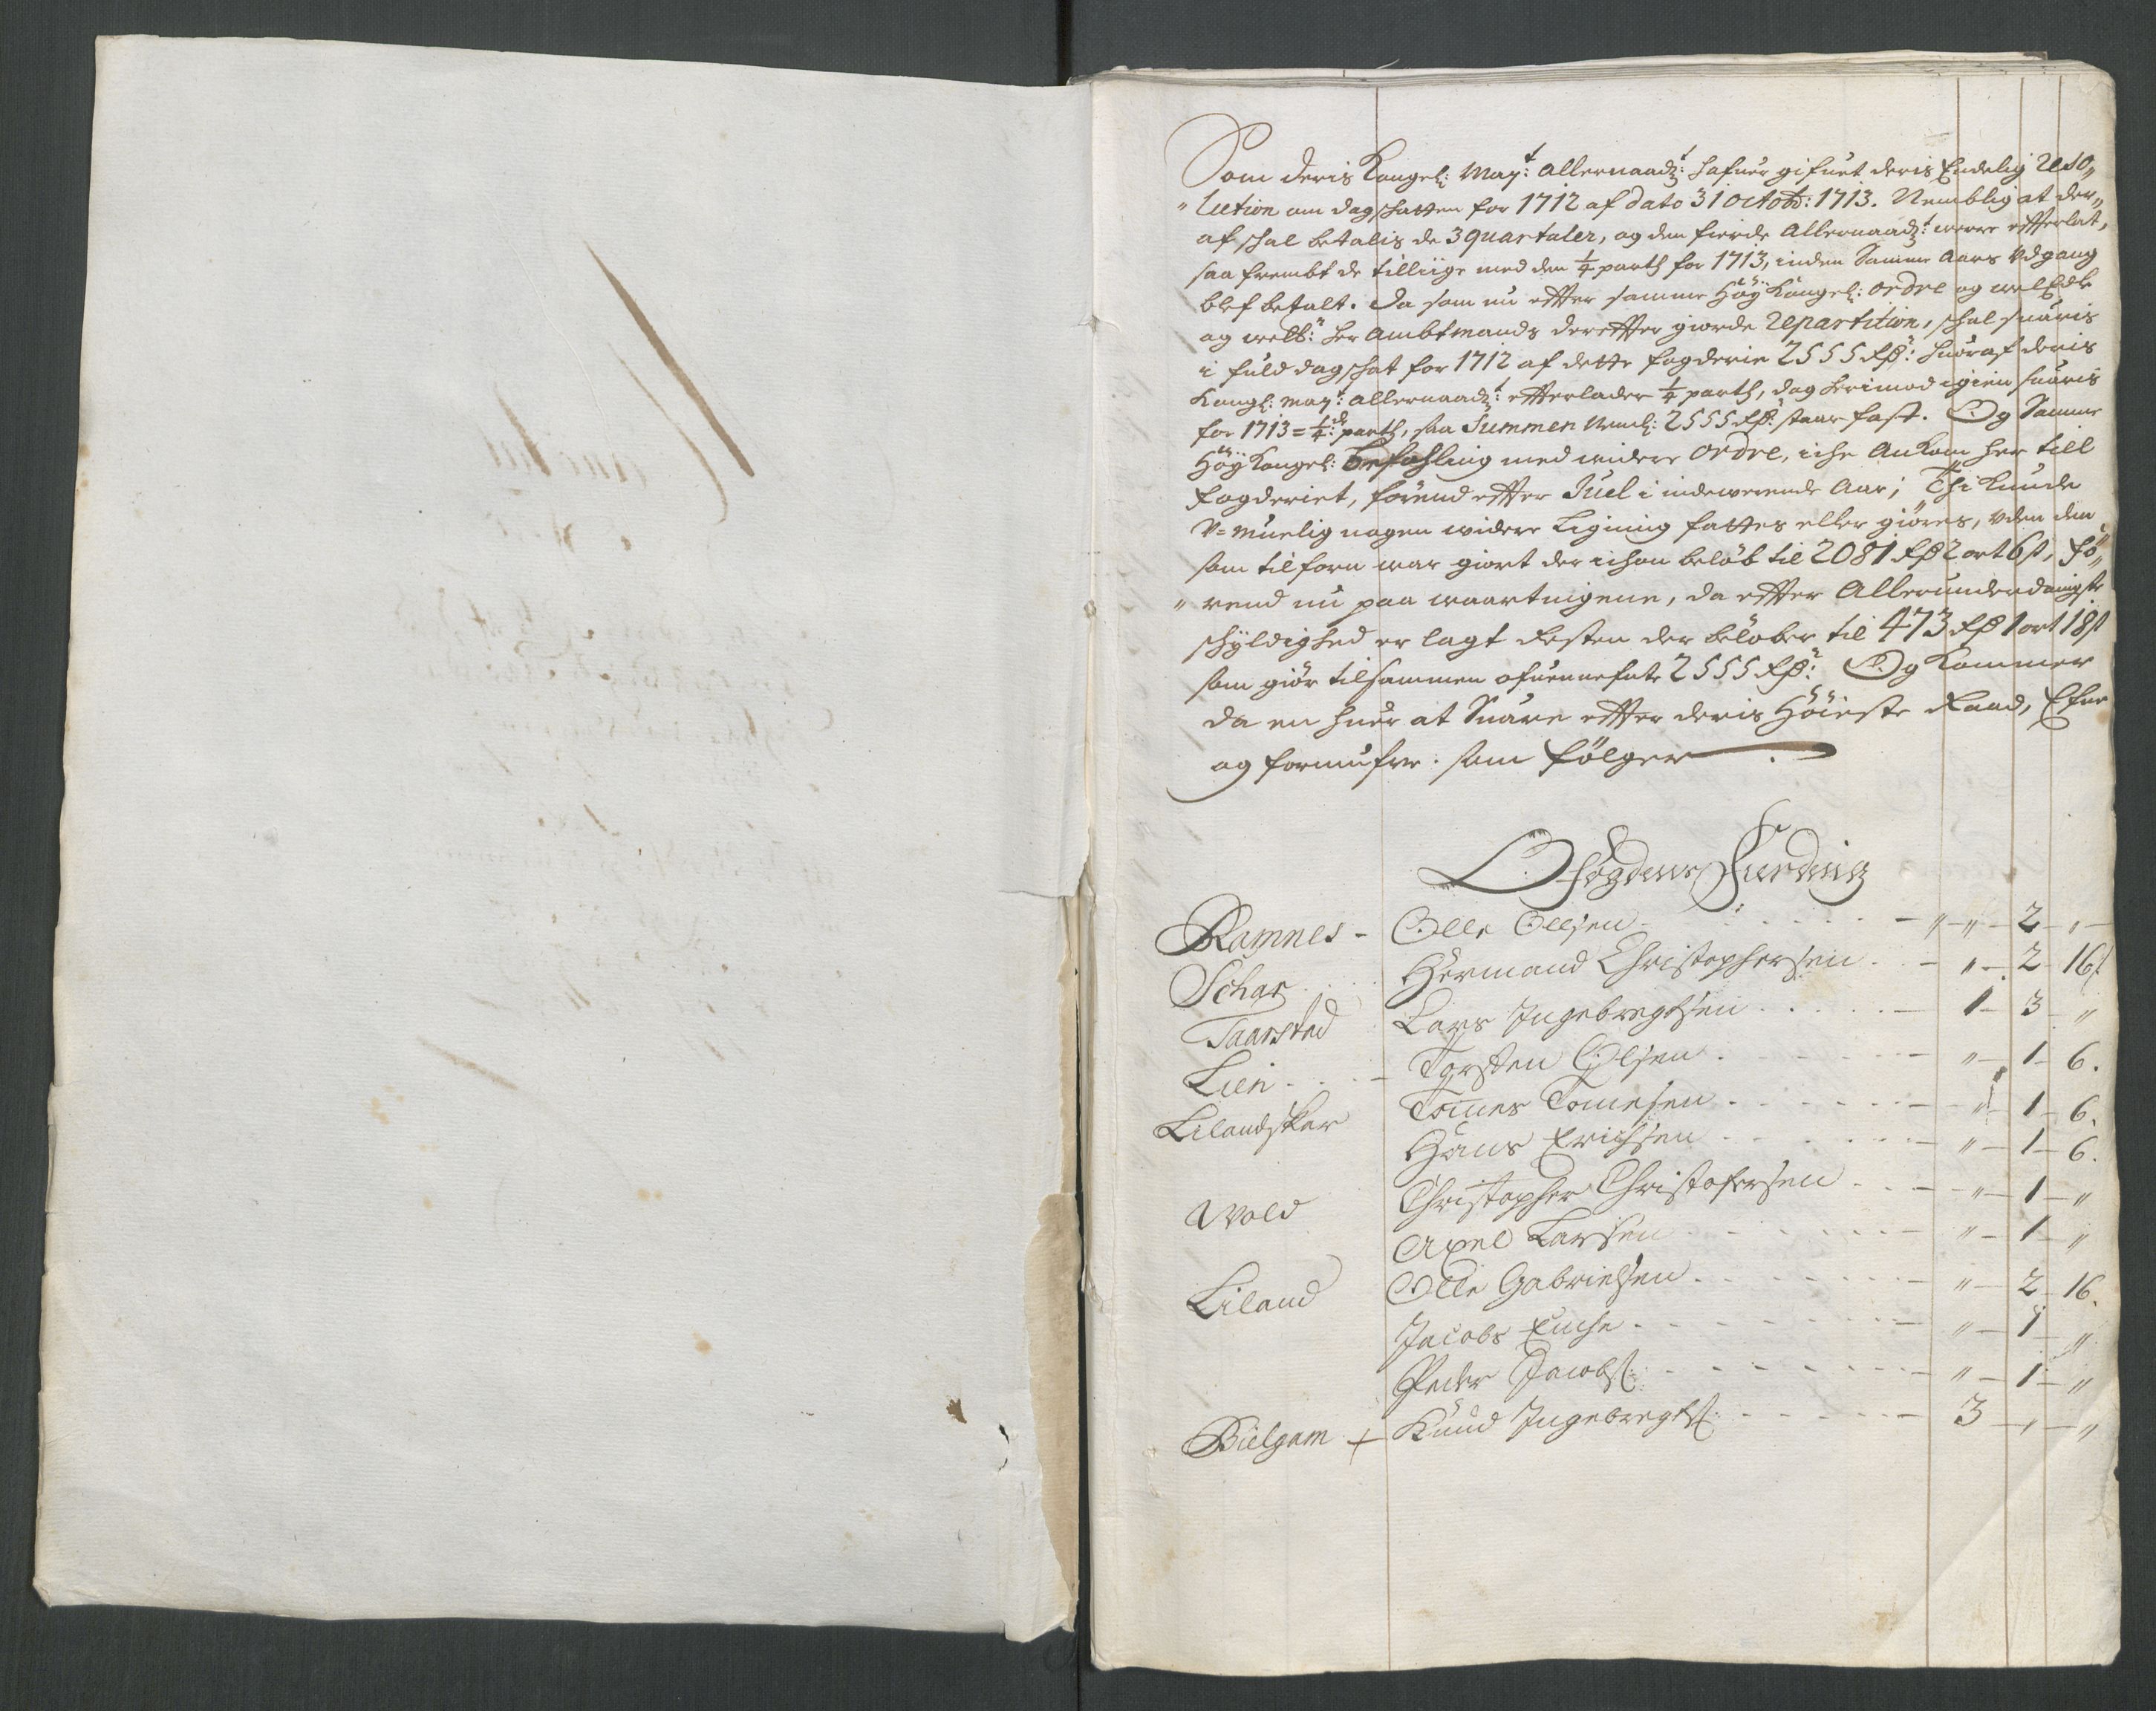 Som deris Kongel: May:t allernaadz:t hafuer gifuet deris Endelig Reso„
„lution om dagschatten for 1712 af dato 31 octobr: 1713. Nemblig at der„
af schal betalis de 3 quartaler, og den fierde Allernaadz:t were efterlat,
saa frembt de tilliige med den ¼ parth for 1713, inden Samme Aars Udgang
blef betalt. Da som nu effter samme Höy Kongel: ordre og welEdle
og welb:n her Ambtmands dereffter giorde Repartition, schal suaris
i fuld dagschat for 1712 af dette fogderie 2555 Rd:r huoraf deris
Kongl: May:t allernaadz:t effterlader ¼ parth, dog herimod igien suaris
for 1713 = ¼:de parth, saa Summen Neml: 2555 Rd:r staar fast. Og Samme
Höy Kongel: befahling med widere ordre, iche Ankom her till
fogderiet, förend effter Juel i indewerende Aar; Thi kunde
U=muelig nogen widere Ligning fattes eller giöres, uden den
som tilforn war giort der ichon belöb til 2081 Rd 2 ort 6 s, fö„
„rend nu paa waartingene, da effter Allerunderdanigste
schÿldighed er lagt Resten der belöber til 473 Rd 1 ort 18 s
som giör tilsammen ofuennefnte 2555 Rd:r Og kommer
da en huer at Suare effter deris Höieste Raad, Efne
og formufue. som fölger.
Ofögdens Fierding
Ramnes - Olle Ollsen - „ - „ - 2 - „ -
Schar Hermand Christophersen - „ - 2 - 16 s
Taarsted Lars Ingebregtsen - 1 - 3 - „
Lien Torsten Olsen - „ - 1 - 6.
Lilandskar Tomes Tomesen - „ - 1 - 6.
Hans Erichsen - „ - 1 - 6.
Wold Christopher Christofersen - „ - 1 - „
Axel Larsen - „ - 1 - „
Liland Olle Gabrielsen - „ - 2 - 16.
Jacobs Enche - „ - 1 - „
Peder Jacobs: - „ - 1 - „
Bielgam + Knud Ingebregts: - 3 - „ - „